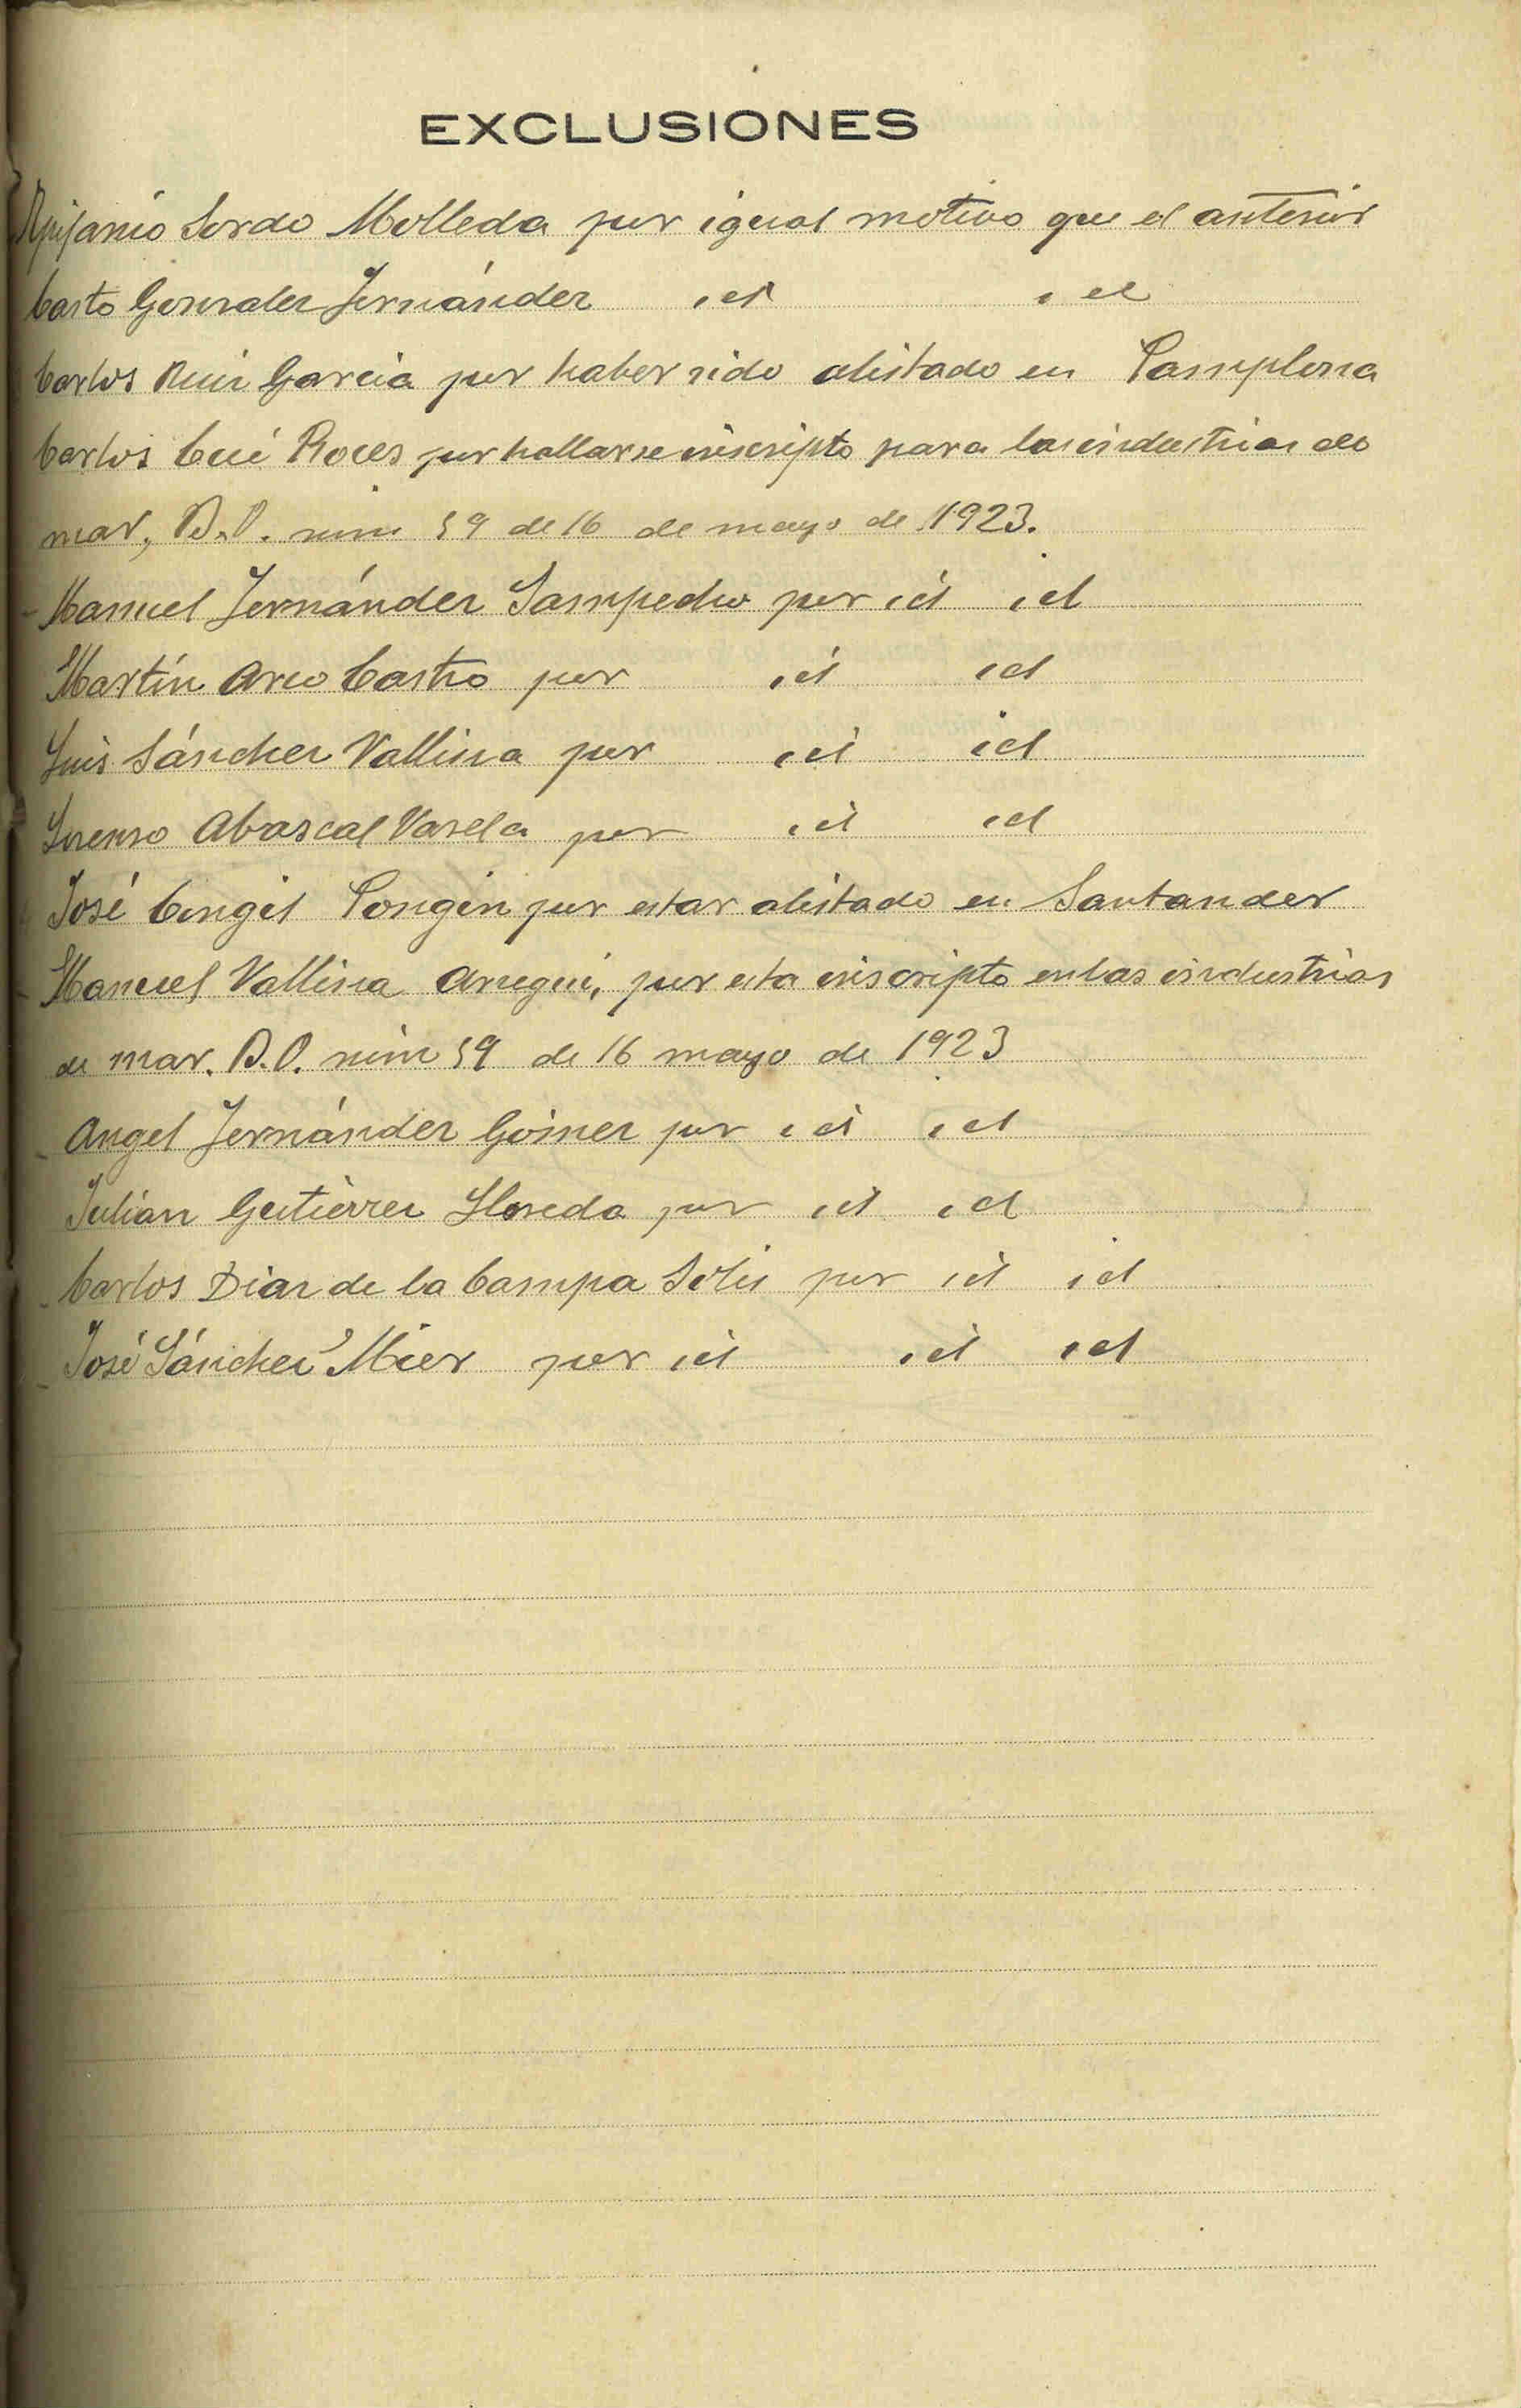 EXCLUSIONES
Epifanio Sordo Molleda por igual motivo que el anterior
Casto Gonzalez Fernández id id
Carlos Ruiz Garcia por haber sido alistado en Pamplona
Carlos Cué Roces por hallarse inscripto para las industrias de
mar, D.O. núm 59 de 16 de mayo de 1923.
Manuel Fernández Sampedro por id id
Martín Arco Castro por id id
Luis Sánchez Vallina por id id
Lorenzo Abascal Varela por id id
José por estar alistado en Santander
Manuel Vallina por esta inscripto en las industrias
de mar. D.O. núm 59 de 16 mayo de 1923
Angel Fernández Gómez por id id
Julián Gutiérrez Lloreda por id id
Carlos Diaz de la Campa Solis por id id
José Sánchez Mier por id id id